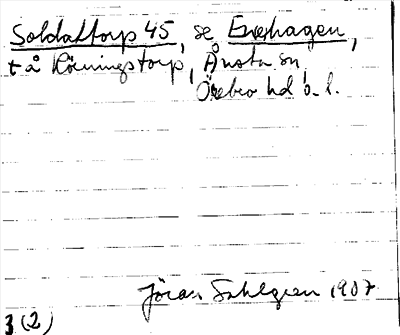 Soldattorp 45, se Eneshagen,
t å Rönningstorp, Ånsta sn,
Örebro hd ö. l.
Jöran Sahlgren 1907
3 (2)